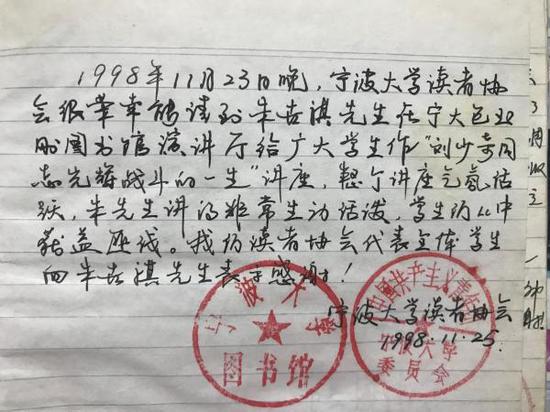 1998年11月23日晚，宁波大学读者协
会很荣幸能请到朱世祺先生在宁大包玉
刚图书馆演讲厅给广大学生作“刘少奇同
志光辉战斗的一生”讲座，整个讲座气氛活
跃，朱先生讲的非常生动活泼，学生们从中
获益匪浅。我们读者协会代表全体学生
向朱世祺先生表示感谢！
宁波大学读者协会
1998.11.25.
宁波大学
图书馆
中国共产主义青年团
宁波大学
委员会